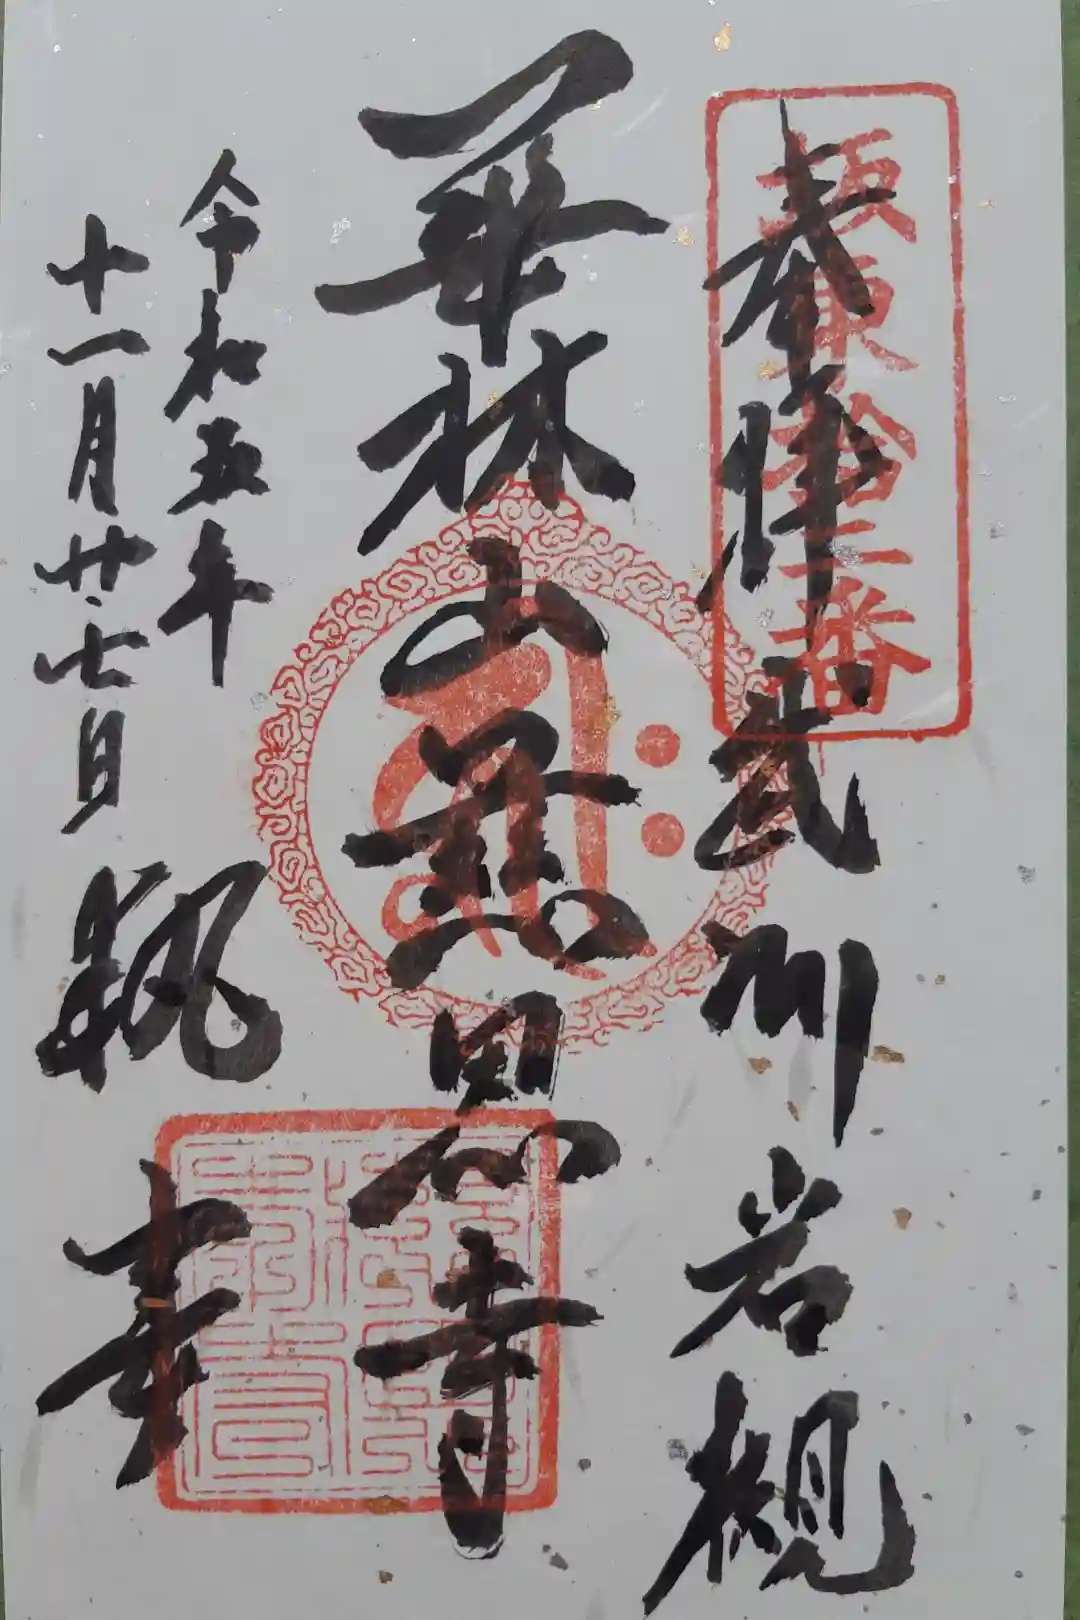 坂東拾二番
奉拝 武州岩槻
華林山慈恩寺
令和五年
十一月廿七日
執事